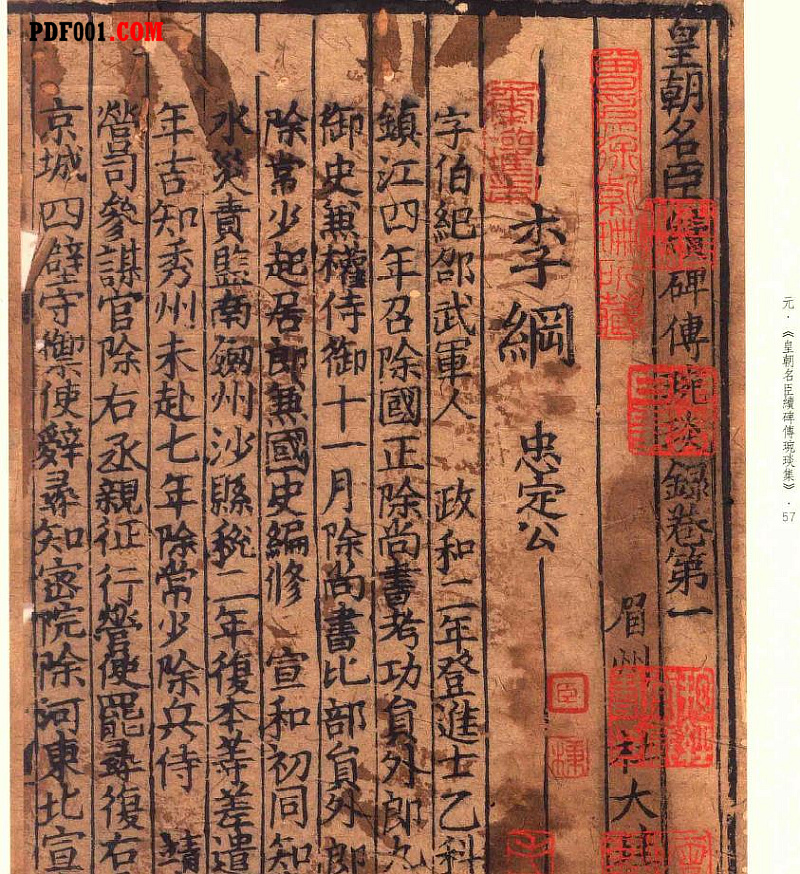 PDF001.COM
皇朝名臣續碑傳琬琰錄卷第一
眉州 杜大
李綱 忠定公
字伯紀邵武軍人 政和二年登進士乙科
鎮江四年召除國正除尚書考功員外郎九
御史兼權侍御十一月除尚書比部員外郎
除常少起居郎兼國史編修 宣和初同知
水災責監南劔州沙縣稅二年復本等差遣
年吉知秀州未赴七年除常少除兵侍 靖
營司參謀官除右丞親征行營使罷尋復右
京城四壁守禦使辭尋知密院除河東北宣
元·《皇朝名臣續碑傳琬琰集》·57